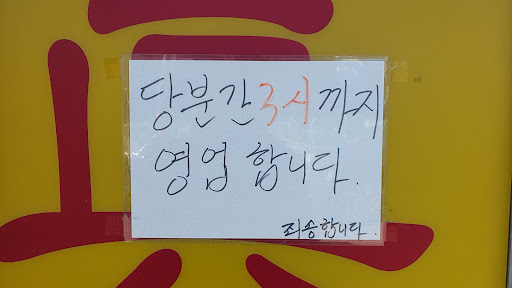 당분간 3시까지
영업 합니다.
죄송합니다.